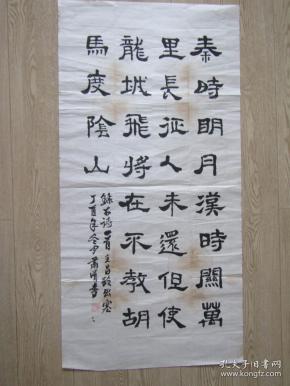 秦時明月漢時關萬
里長征人未還但使
龍城飛將在不教胡
馬度陰山
錄古詩一首王昌齡出塞
丁酉年冬月
孔夫子旧书网